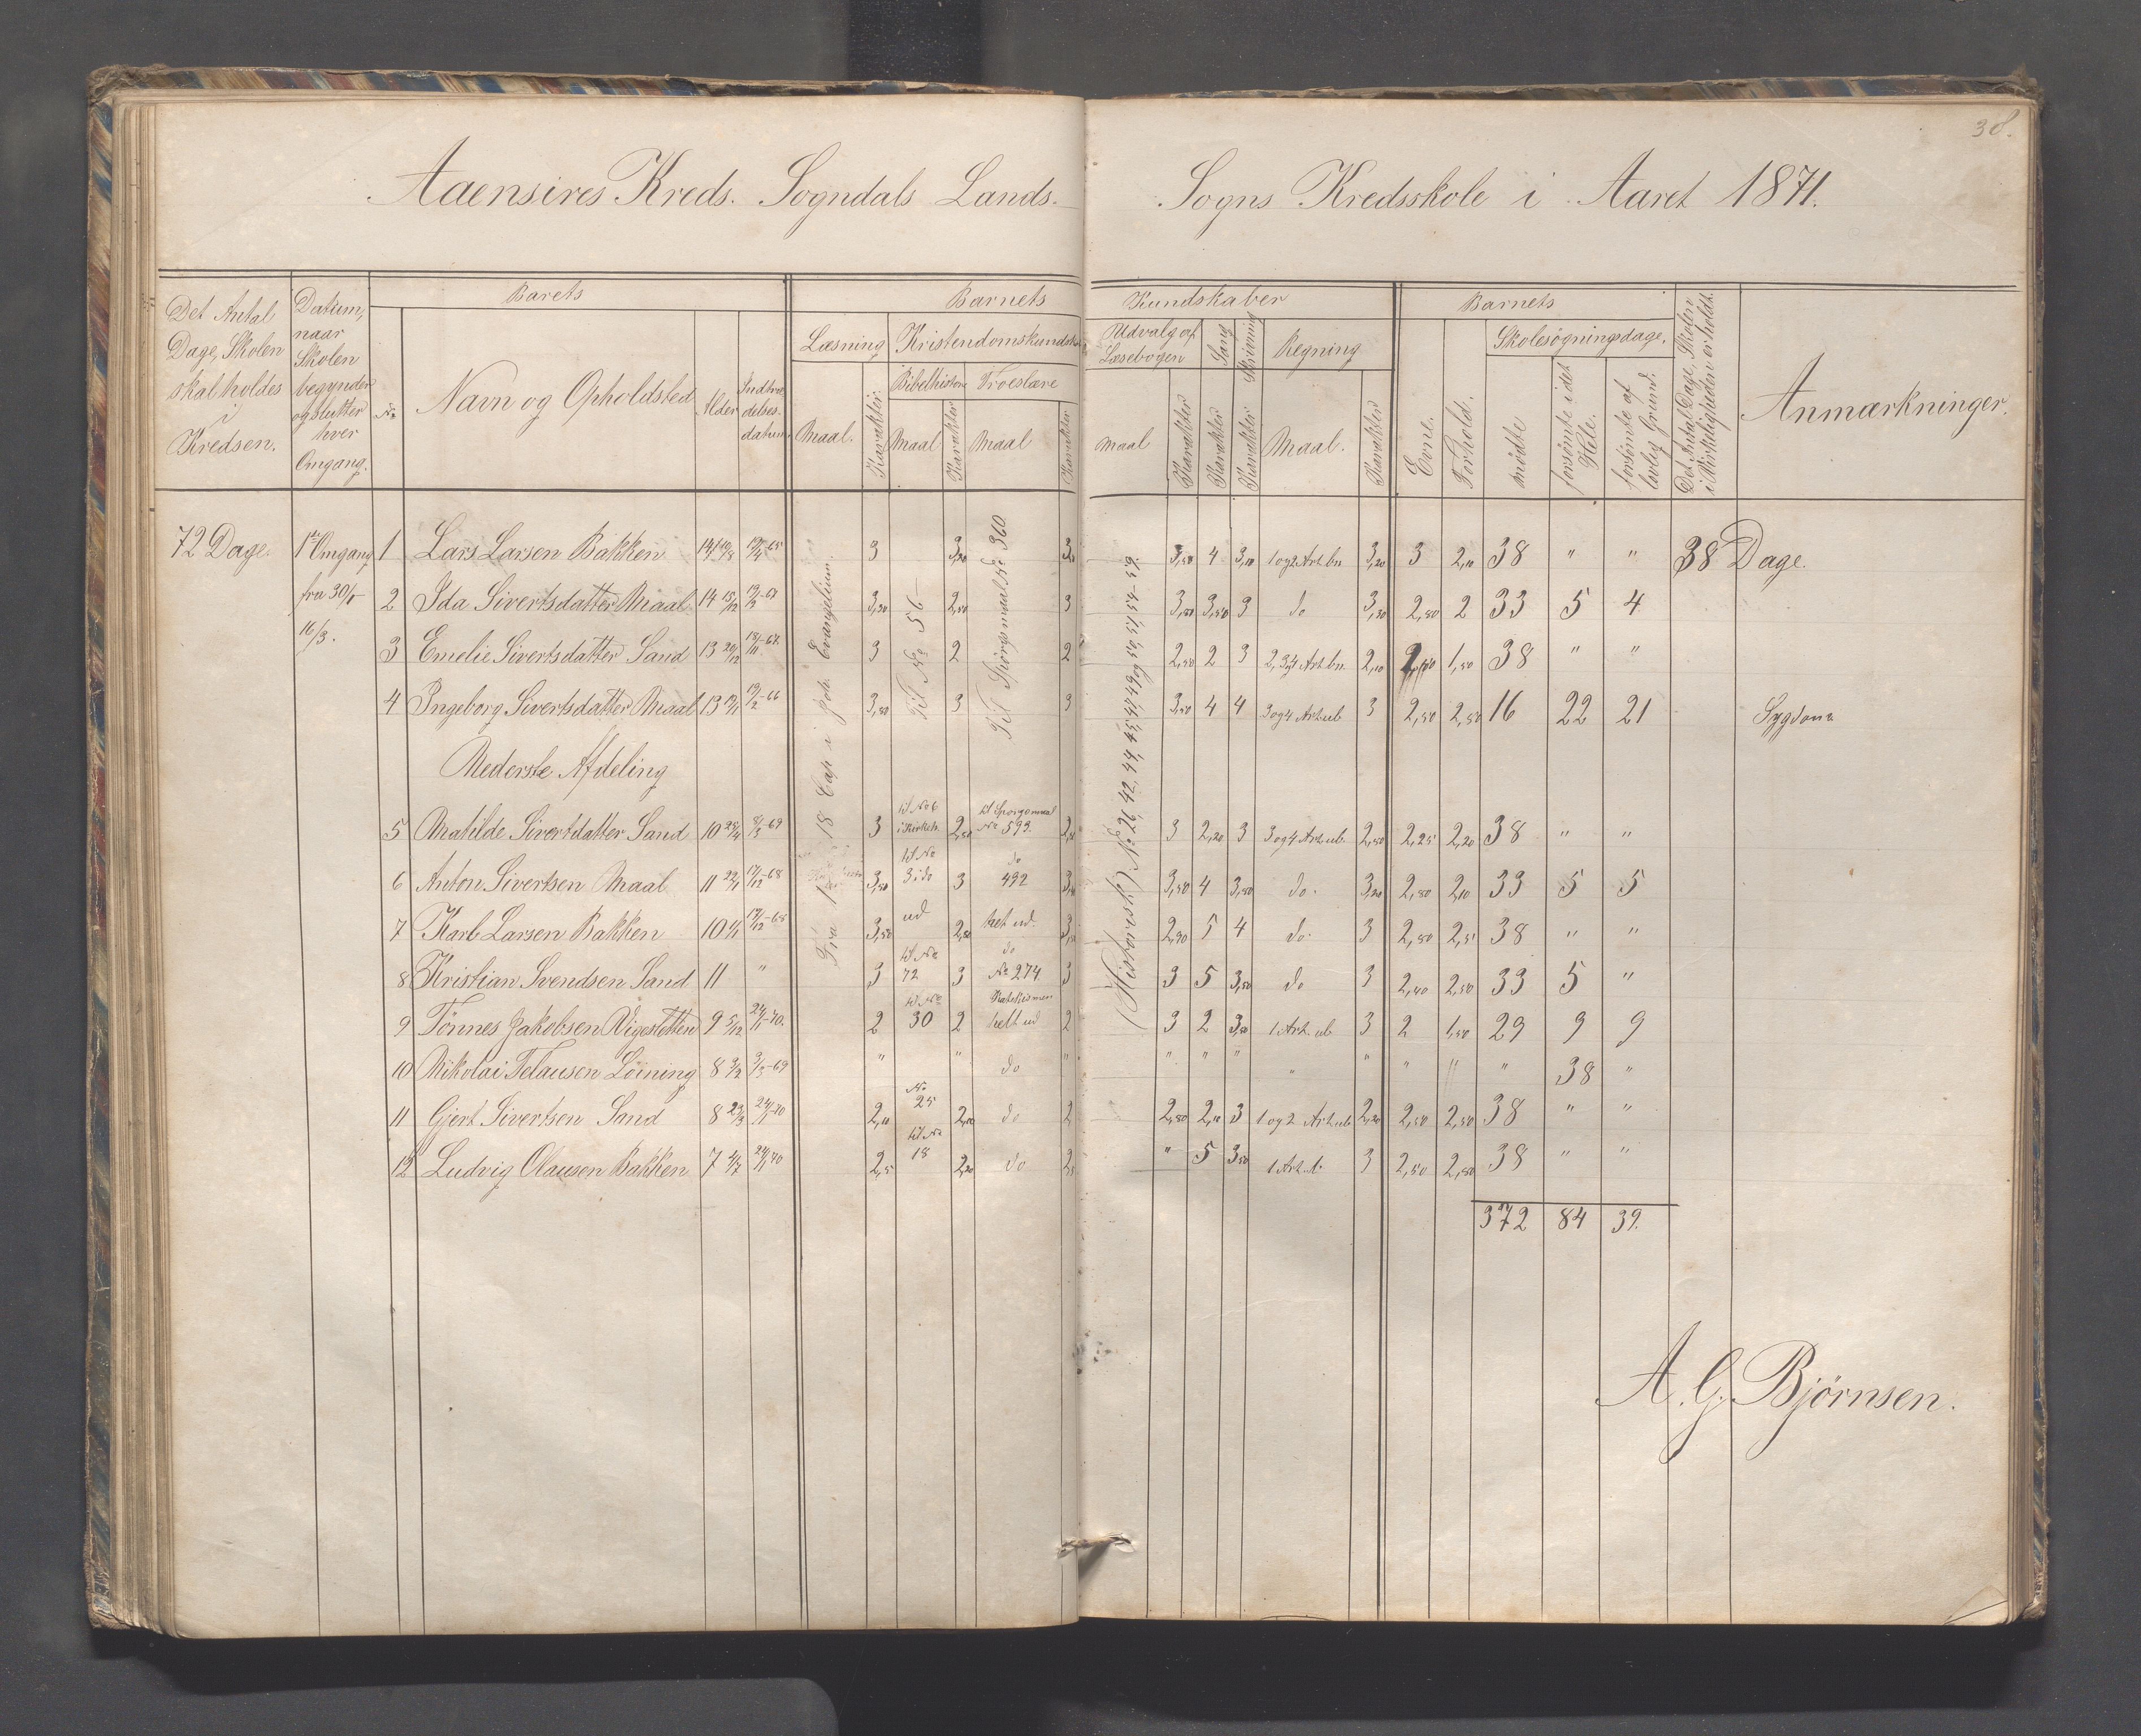 38.
Aaensires Kreds. Sogndals Lands- Sogns Kredsskole i Aaret 1871.
Det Antal Dage, Skolen skal holdes i Kredsen.
Datum, naar Skolen begynder og slutter hver Omgang.
Barets
No
Navn og Opholdsted
Alder
Indtrædelsesdatum
Barnets Kundskaber
Læsning
Maal. Karakter
Kristendomskundskab
Bibelhistorie
Maal Karakter
Troeslære
Maal Karakter
Udvalg af Læsebogen
Maal Karakter
Sang
Karakter
Skrivning
Karakter
Regning
Maal. Karakter
Barnets
Evne. Forhold.
Skolesøgningsdage.
mødte
forsømte i det Hele.
forsømte af lovlig Grund.
Det Antal Dage, Skolen i Virkeligheden er holdt.
Anmærkninger.
72 Dage. 1ste Omgang fra 30/1 16/3.
Fra 1 18 Cap i Joh. Evangelium.
Til No 56
Til Spörgsmaal No 360
(Historisk) No 26, 42, 44, 45, 47, 49 og 50, 51, 54-59.
1 Lars Larsen Bakken 14 3 3,50 4 3,10 1 og 2 Art. bn 3,20 3 2,10 38 " " 38 Dage.
2 Ida Sivertsdatter Maal 14 15/12 3,20 2,50 3 3,50 3,50 3 do 3,30 2,50 2 33 5 4
3 Emelie Sivertsdatter Sand 13 20/12 3 2 2 2,50 2 3 2, 3 og 4 Art. bn. 2,10 1,50 38 " "
4 Ingeborg Sivertsdatter Maal 13 3,50 3 3 3,50 4 4 3 og 4 Art. ub 3 2,50 2,50 16 22 21 Sygdom
Nederste Afdeling
5 Matilde Sivertdatter Sand 10 8/3-69 3 til No 6 i Kirkeh. 2,50 til Sporgsmaal No 593. 3 2,20 3 3 og 4 Art. ub. 2,50 2,25 2,20 38 " "
6 Anton Sivertsen Maal 11 22/1 17/12-68 3,50 til No 3 i do 3 do 492 3,50 4 3,50 do. 3,20 2,50 2,10 33 5 5
7 Karl Larsen Bakken 10 17/12-68 3,50 ud 2,50 helt ud. 2,90 5 4 do. 3 2,50 2,51 38 " "
8 Kristian Svendsen Sand 11 " 3 til No 72 3 do No 274 3 3 5 3,50 do 3 2,40 2,50 33 5 "
9 Tönnes Jakobsen Vigestötten 9 5/12 24/1-70. 2 til No 30 2 Katekismen helt ud 2 3 2 3,50 1 Art. ub 3 2 1,50 29 9 9
10 Nikolai Telausen Löining 8 3/2 3/3-69 " " do " " " " " " " " " 38 "
11 Gjert Sivertsen Sand 8 23/3 24/1-70 2,10 No 25 2,10 do 2 2,50 2,10 3 1 og 2 Art. ub 2,20 2,50 2,50 38 " "
12 Ludvig Olausen Bakken 7 4/7 24/1-70 2,5 til No 18 2,20 do " 5 3,50 1 Art. 3 2,50 2,50 38 " "
372 84 39.
A. G. Björnsen.